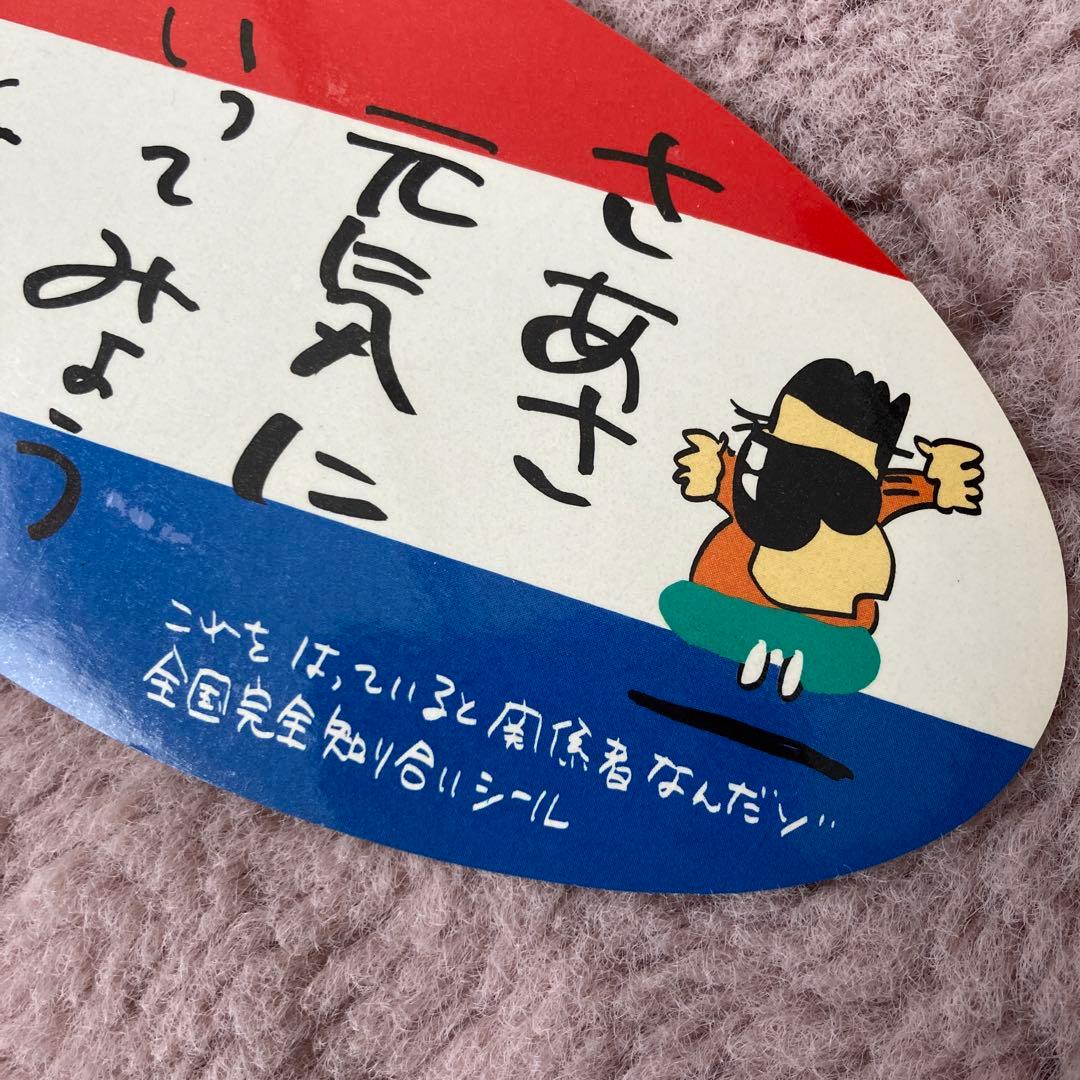 さあさ
元気に
いってみょう
これをはっていると関係者なんだゾ‥
全国完全触り合いシール